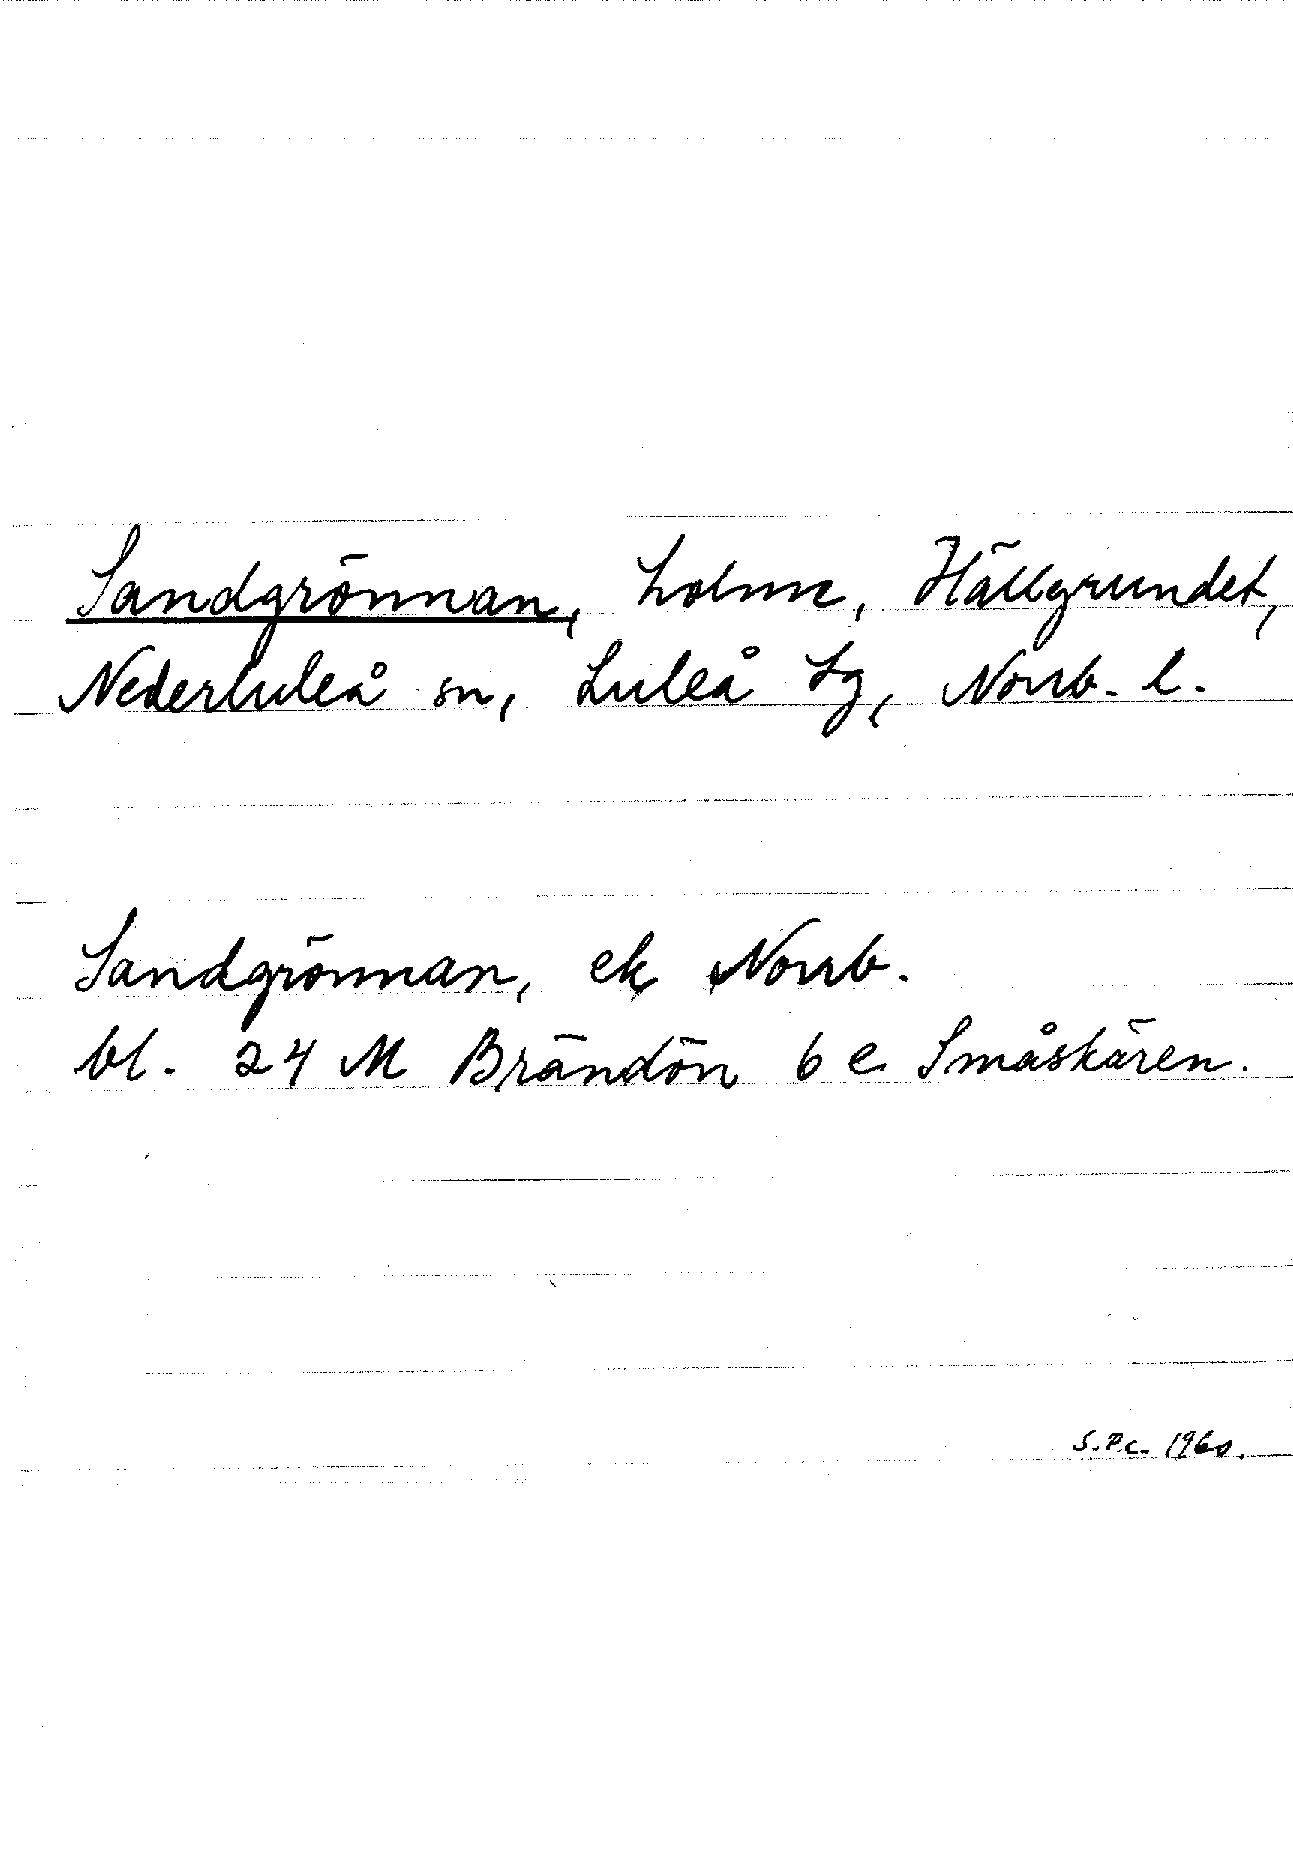 Sandgrönnan, holme, Hällgrundet,
Nederluleå sn, Luleå tg, Norrb. l.
Sandgrönnan, ek Norrb.
bl. 24 M Brändön 6 e Småskären.
S.P.C. 1960.